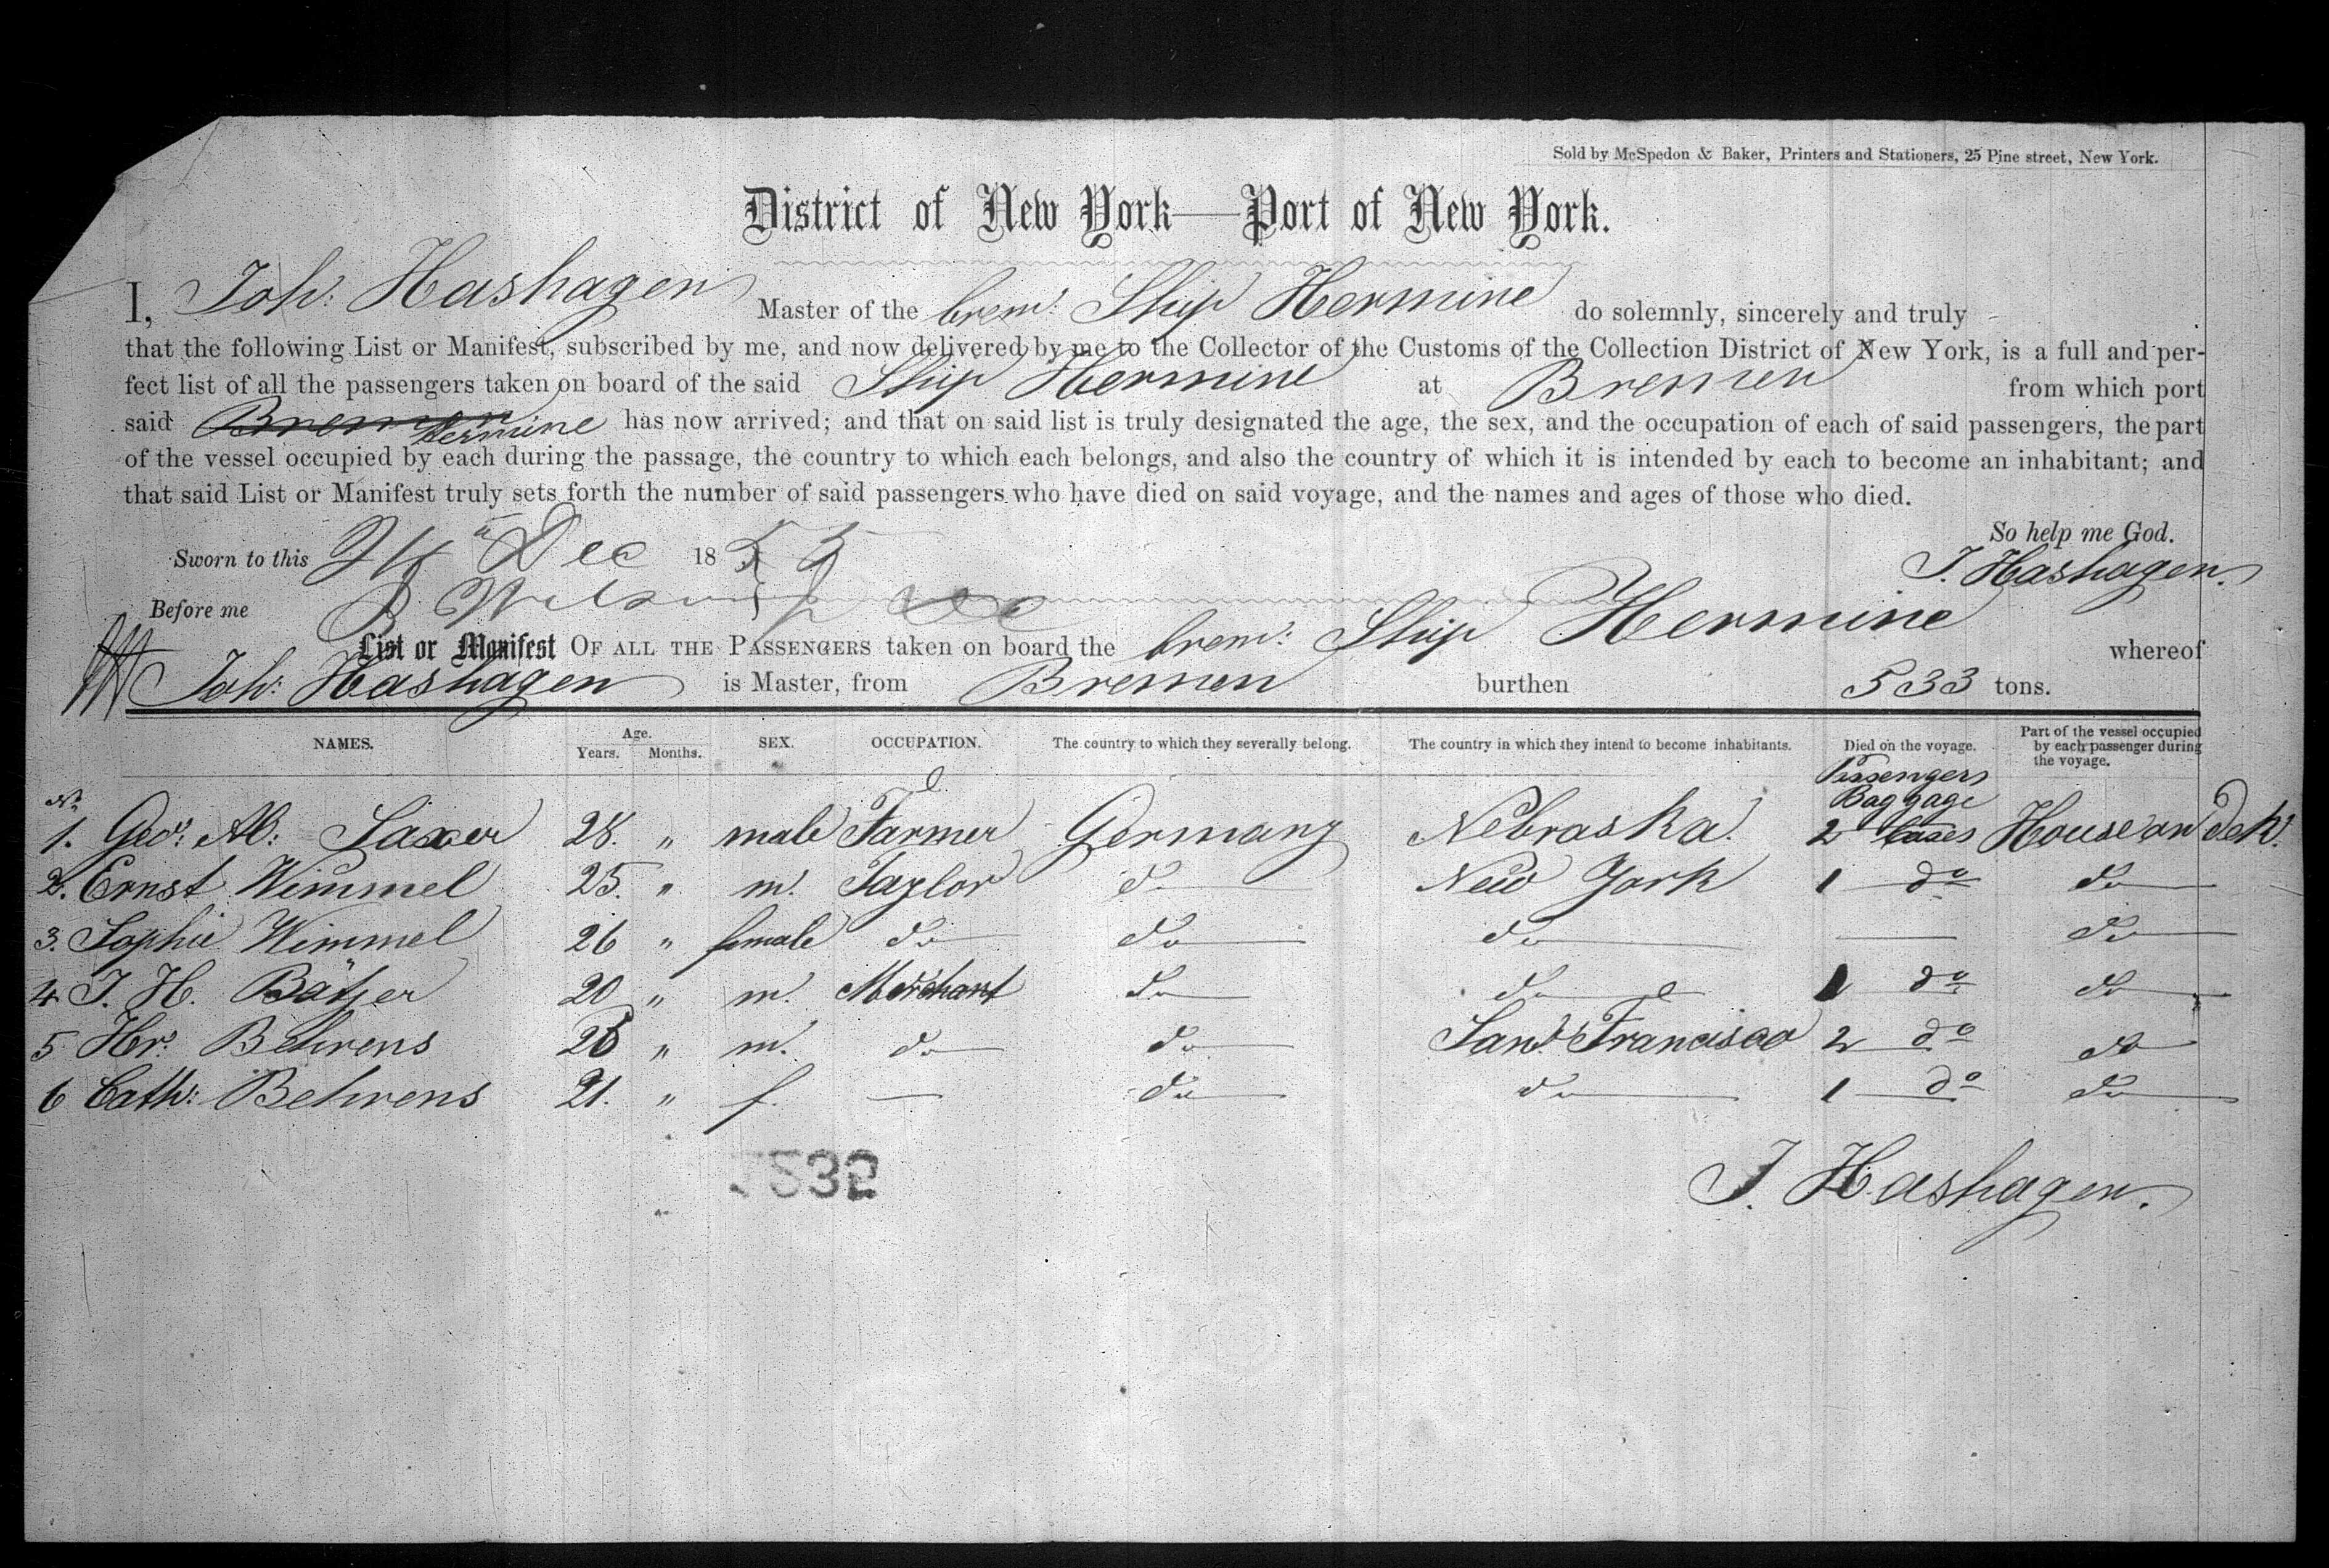 Sold by McSpedon & Baker, Printers and Stationers, 25 Pine street, New York.
District of New York—Port of New York.
I, Joh: Hashagen Master of the brem: Ship Hermine do solemnly, sincerely and truly
that the following List or Manifest, subscribed by me, and now delivered by me to the Collector of the Customs of the Collection District of New York, is a full and per-
fect list of all the passengers taken on board of the said Ship Hermine at Bremen from which port
said Bremen Hermine has now arrived; and that on said list is truly designated the age, the sex, and the occupation of each of said passengers, the part
of the vessel occupied by each during the passage, the country to which each belongs, and also the country of which it is intended by each to become an inhabitant; and
that said List or Manifest truly sets forth the number of said passengers who have died on said voyage, and the names and ages of those who died.
So help me God.
Sworn to this Dec 1855 J. Hashagen.
Before me
List or Manifest OF ALL THE PASSENGERS taken on board the brem: Ship Hermine whereof
Joh: Hashagen is Master, from Bremen burthen 533 tons.
NAMES. Age. Years. Months. SEX. OCCUPATION. The country to which they severally belong. The country in which they intend to become inhabitants. Died on the voyage. Part of the vessel occupied by each passenger during the voyage.
Passengers
No. Baggage
1. Geo: Al: Saxer 28. " male Farmer Germany Nebraska. 2 Cases House on deck.
2. Ernst Wimmel 25. " m. Taylor do New York 1 do do
3. Sophie Wimmel 26 " female do do do — do
4 J. H. Bätjer 20 " m. Merchant do do 1 do do
5 Hr: Behrens " m. do do San Francisco 2 do do
6 Cath: Behrens 21. " f. — do do 1 do do
J. Hashagen.